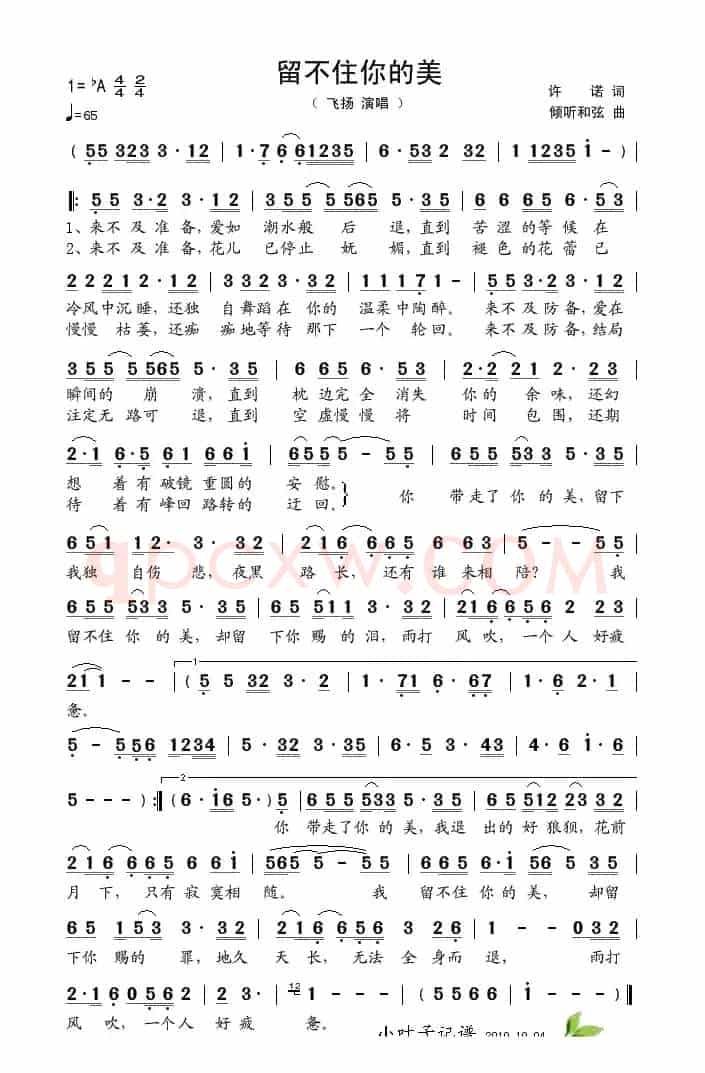 留不住你的美
1=♭A 4/4 2/4
♩=65
( 飞扬 演唱 )
许 诺 词
倾听和弦 曲
( 55 323 3 · 12 | 1 · 7 6 61235 | 6 · 53 32 · 3 | 1 1235 i - ) |
‖: 5 5 3·2 3 · 12 | 35 5 5 5 · 35 | 6 6 65 6 · 53 |
1、来不及准备,爱如 潮水般 后 退,直到 苦涩的等候在
2、来不及准备,花儿 已停止 妩 媚,直到 褪色的花蕾已
2 2 21 2 · 12 | 3 32 3 · 23 | 1 11 7 1 - | 55 3·2 3 · 12 |
冷风中沉睡,还独 自舞蹈在你的 温柔中陶醉。 来不及防备,爱在
慢慢枯萎,还痴 痴地等待那下 一个轮回。 来不及防备,结局
35 5 5 565 5 · 35 | 6 6 65 6 · 53 | 2·2 21 2 · 23 |
瞬间的 崩 溃,直到 枕边完全 消失 你的 余味,还幻
注定无路可 退,直到 空虚慢慢 将 时间 包围,还期
2·1 6·5 61 661 | 6 5 5 5 - 55 | 6 5 5 5 533 5 · 35 |
想 着有破镜重圆的 安慰。 你 带走了你的美,留下
待 着有峰回路转的 迂回。
651 12 · 3 · 32 | 2 3 5 3 · 56 | 6 65 63 | 5 - - 55 |
我独 自伤 悲,夜黑 路长,还有谁来相陪? 我
655 533 5 · 35 | 65 153 3 · 32 | 216 6 65 6 56 |
留不住你的美,却留 下你赐的泪,雨打 风吹,一个人好疲
211 - - | ( 5 55 32 3 · 2 | 1 · 71 6 · 67 | 1·6 2·1 |
惫。
5 - 556 1234 | 5 · 32 3 · 35 | 6 · 53 · 43 | 4·6 i · 6 |
5 - - - ) :‖ ( 6 · i6 5 · ) 5 | 6 5 5 5 533 5 · 35 | 6 5512 233 32 |
你 带走了你的美,我退 出的好狼狈,花前
216 665 6 6i | 565 5 - 55 | 6 5 5 5 533 5 · 35 |
月下,只有寂寞相 随。 我 留不住你的美, 却留
65 153 3 · 32 | 2 3 5 6·56 | 3 26 1 · 32 |
下你赐的罪,地久 天长,无法全身而退, 雨打
2·1 6056 2 · 3 | 1 - - - | 6 · 54 · 24 | 5 · 67 · 5 | i - - - ‖
风吹,一个人好疲 惫。
小叶子记谱 2010-10-04
qpcxw.com